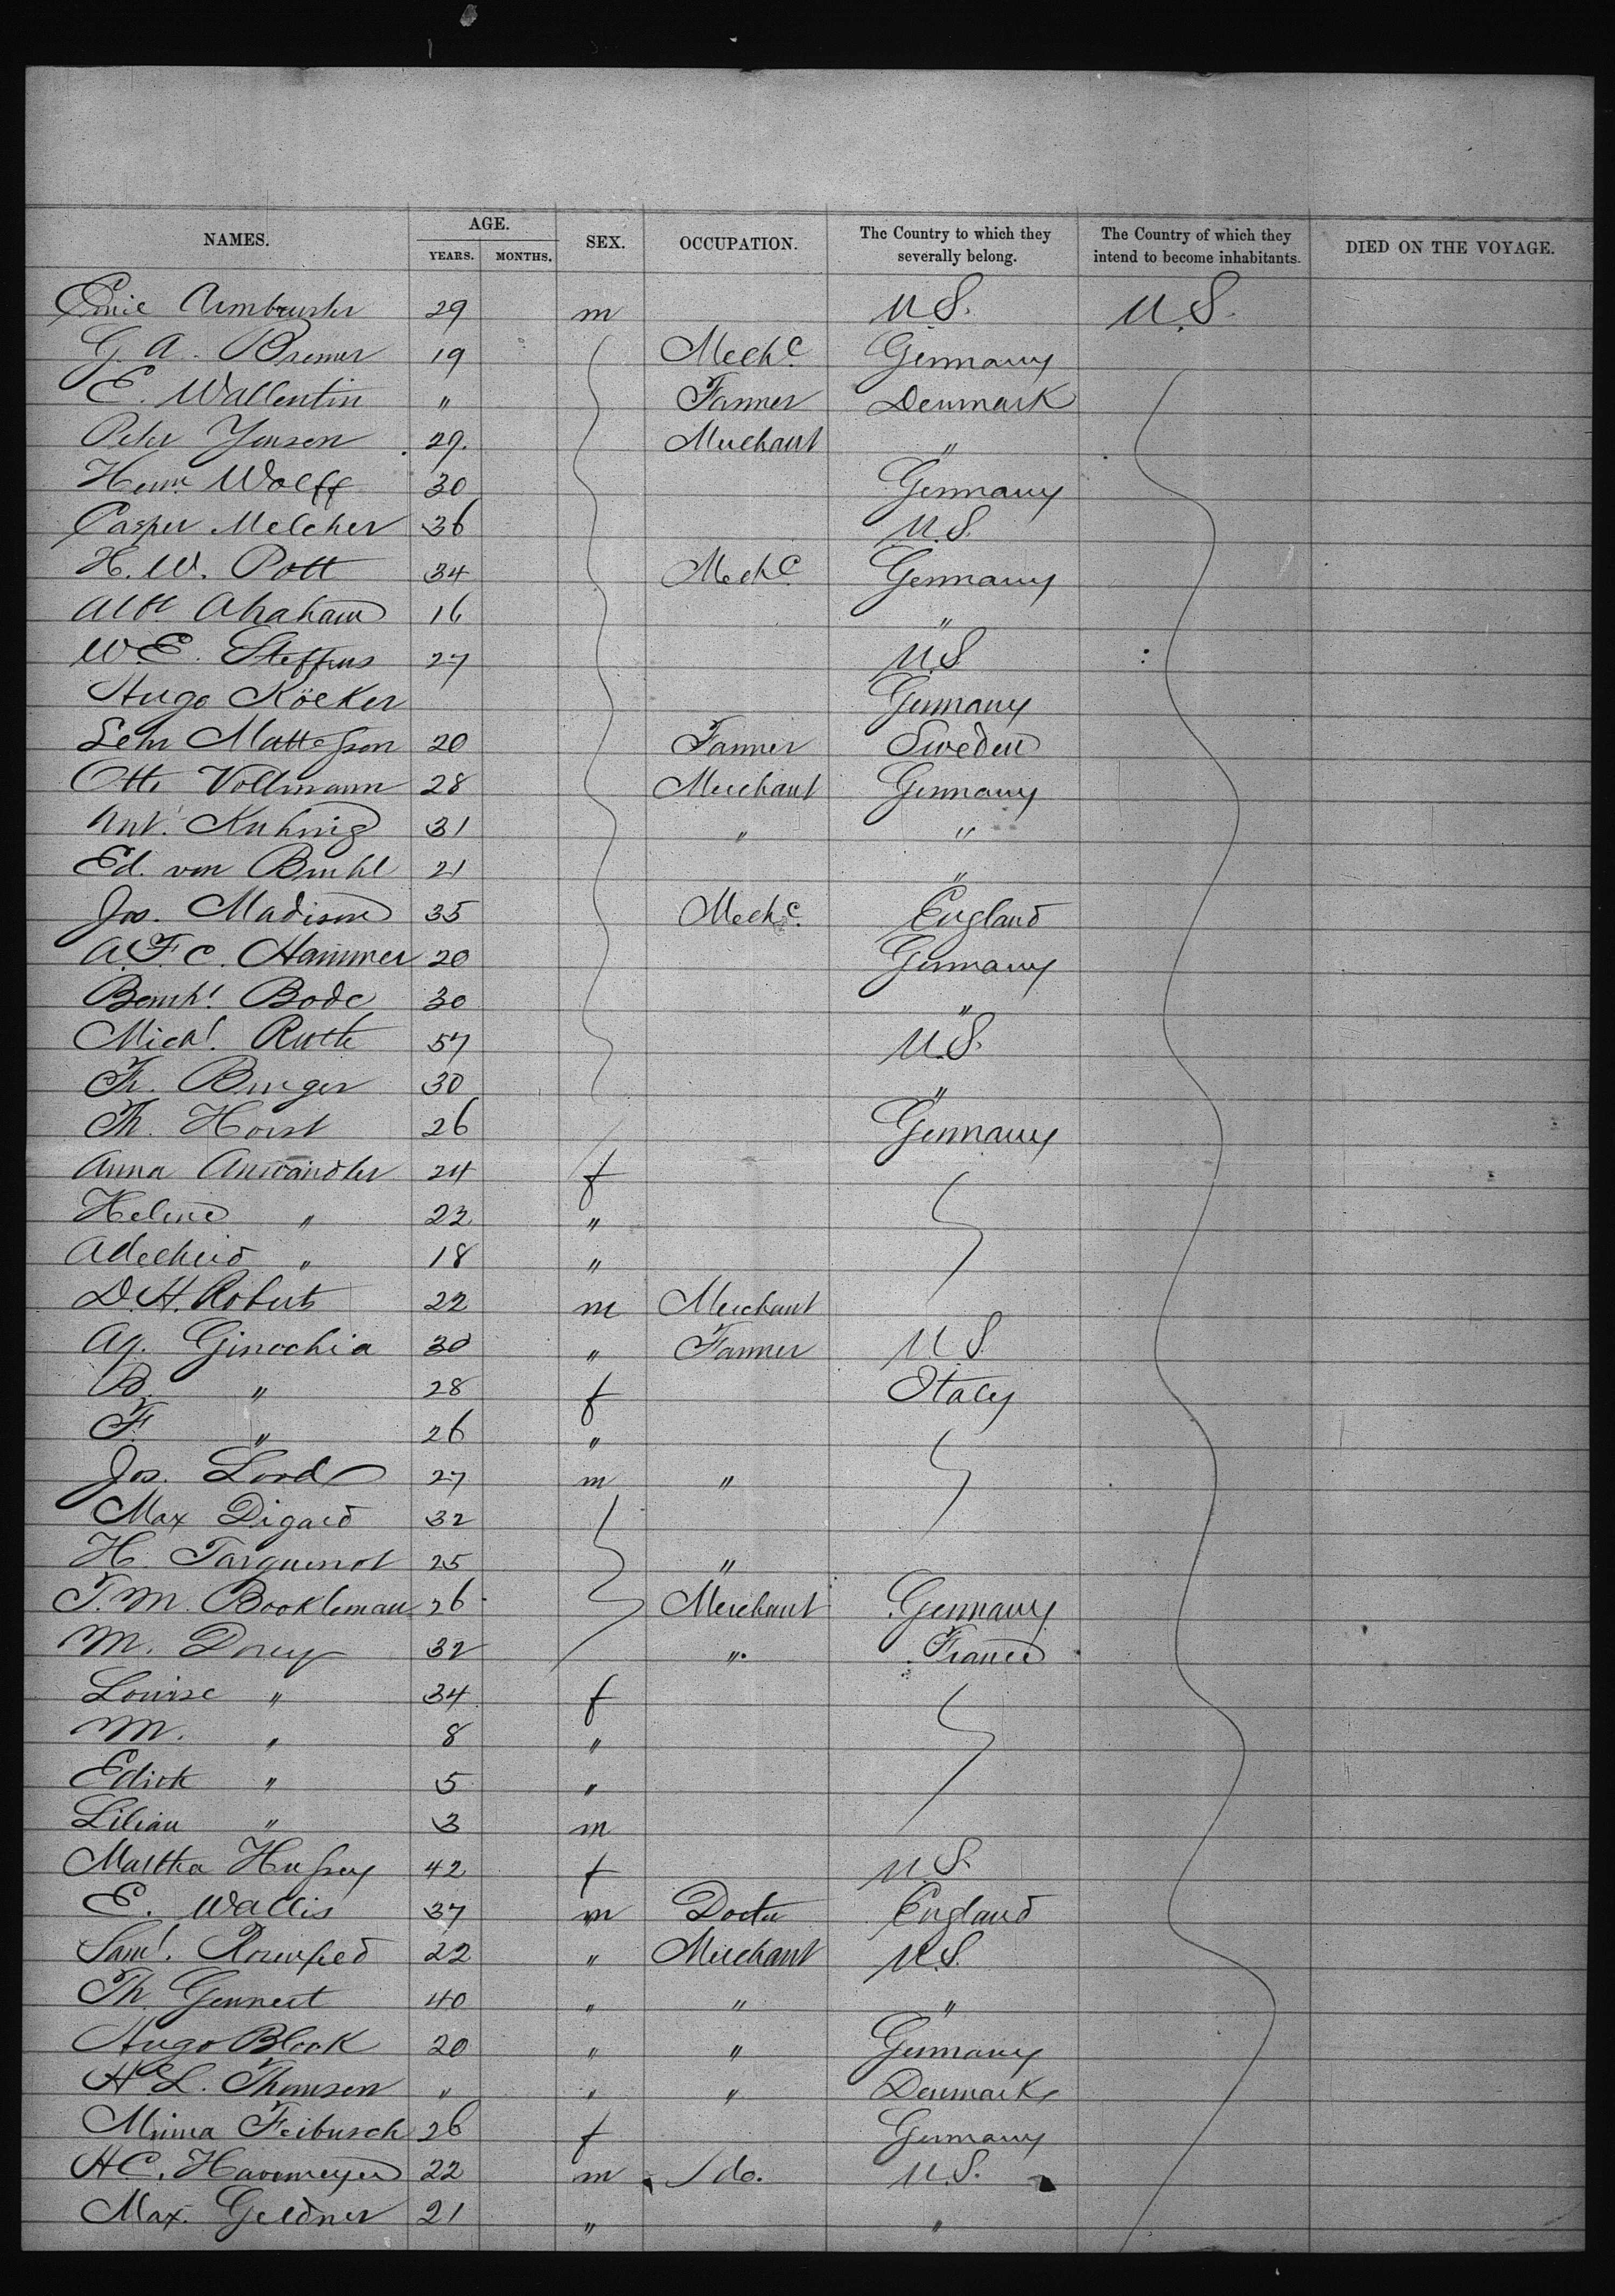 NAMES. AGE. YEARS. MONTHS. SEX. OCCUPATION. The Country to which they severally belong. The Country of which they intend to become inhabitants. DIED ON THE VOYAGE.
Armbruster 29 m U.S. U.S.
G. A. Bremer 19 Mechc Germany
E. Wallentin " Farmer Denmark
Peter Jensen 29. Merchant "
Henr. Wolff 30 Germany
Casper Melcher 36 U.S.
H. W. Pott 34 Mechc Germany
Albt Abraham 16 "
W. E. Steffens 27 U.S
Hugo Köcker Germany
Mattesson 20 Farmer Sweden
Otto Vollmann 28 Merchant Germany
Ant. Kuhnig 31 " "
Ed. von Bruhl 21 "
Jos. Madison 35 Mechc. England
A. F. C. Hammer 20 Germany
Bernh! Bode 30 "
Mich! Ruth 57 U.S.
Fr. Burger 30 "
Th. Horst 26 Germany
Anna Anwandter 24 f
Helene " 22 "
Adelheid " 18 "
D. H. Roberts 22 m Merchant
Ag. Ginochia 30 " Farmer U.S.
B. " 28 f Italy
F. " 26 "
Jos. Lord 27 m "
Max Digard 32
H. Tarquenot 25 "
T. M. Bookleman 26 Merchant Germany
M. Dorey 32 " France
Louise " 34 f
M. " 8 "
Edith " 5 "
Lilian " 3 m
Martha Hussey 42 f U.S.
E. Wallis 37 m Doctor England
Sam!. 22 " Merchant U.S.
Th. Gennert 40 " " "
Hugo Block 20 " " Germany
H. L. Thomsen " " " Denmark
Minna Feibusch 26 f Germany
H. C. Havemeyer 22 m do. U.S.
Max. Geldner 21 " "